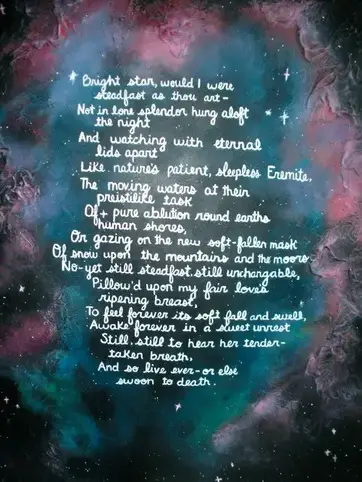 Bright star, would I were
steadfast as thou art-
Not in lone splendor hung aloft
the night
And watching with eternal
lids apart
Like nature's patient, sleepless Eremite,
The moving waters at their
preistilike task
Of + pure ablution round earths
human shores,
Or gazing on the new soft-fallen mask
Of snow upon the mountains and the moors
No-yet still steadfast, still unchangable,
Pillow'd upon my fair love's
ripening breast,
To feel forever its soft fall and swell,
Awake forever in a sweet unrest
Still, still to hear her tender-
taken breath,
And so live ever-or else
swoon to death.